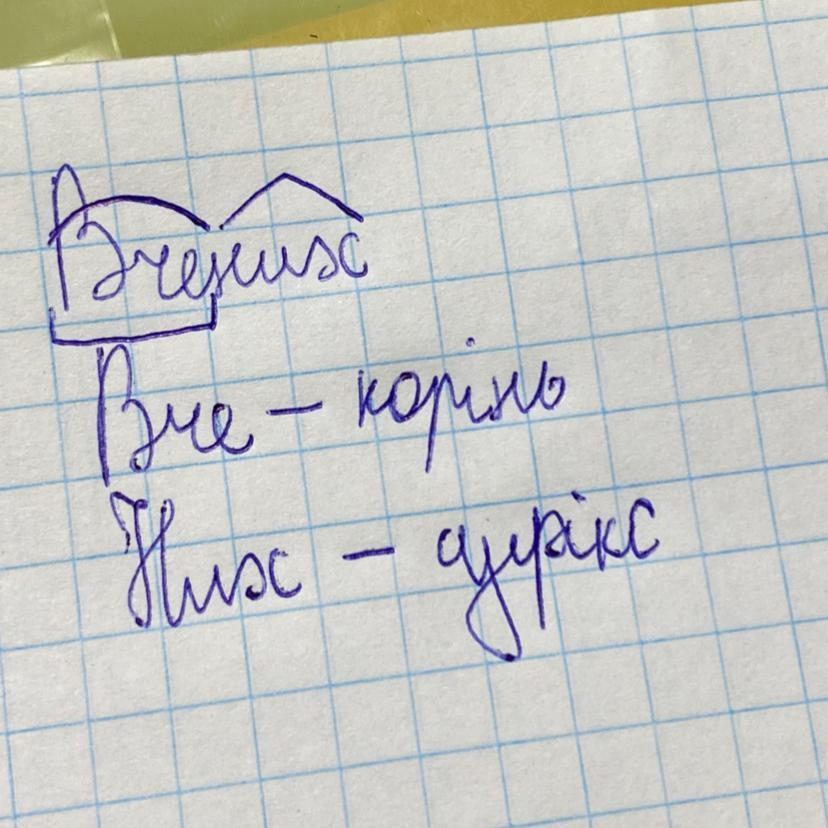 Вчених
Вче - корінь
Них - суфікс